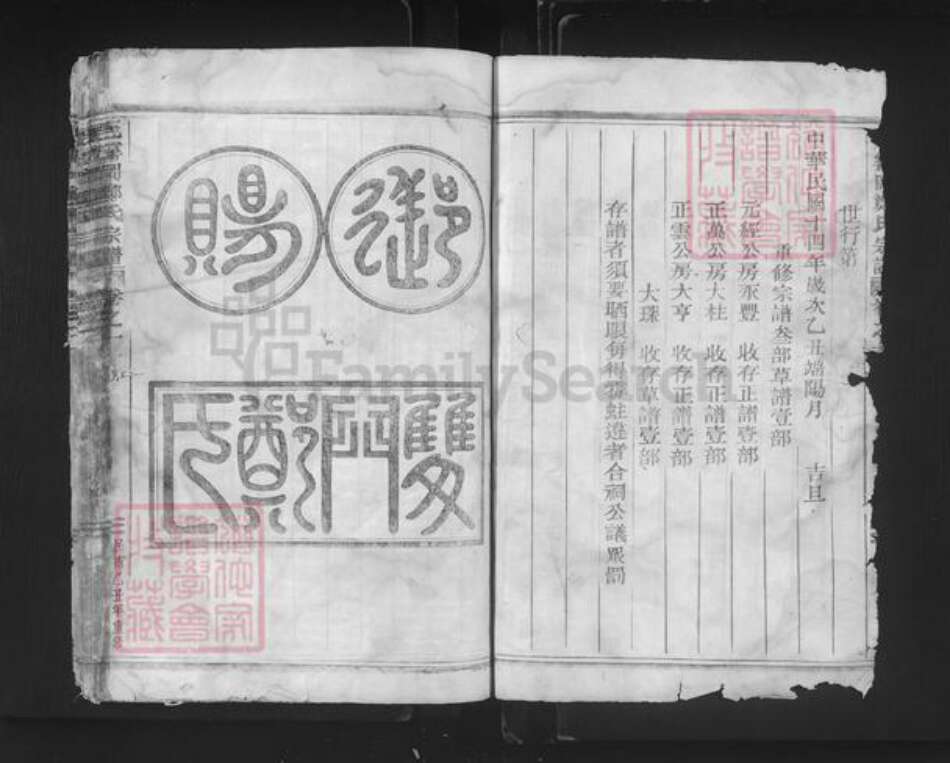 世行第
中華民國十四年歲次乙丑端陽月 吉旦
重修宗譜叁部草譜壹部
元經公房永豐 收存正譜壹部
正萬公房大柱 收存正譜壹部
正雲公房大亨 收存正譜壹部
大珠 收存草譜壹部
存譜者須要晒眼毎得
蛀違者合祠公議眾罰
御賜
雙門鄭氏
鄭氏宗譜
FamilySearch